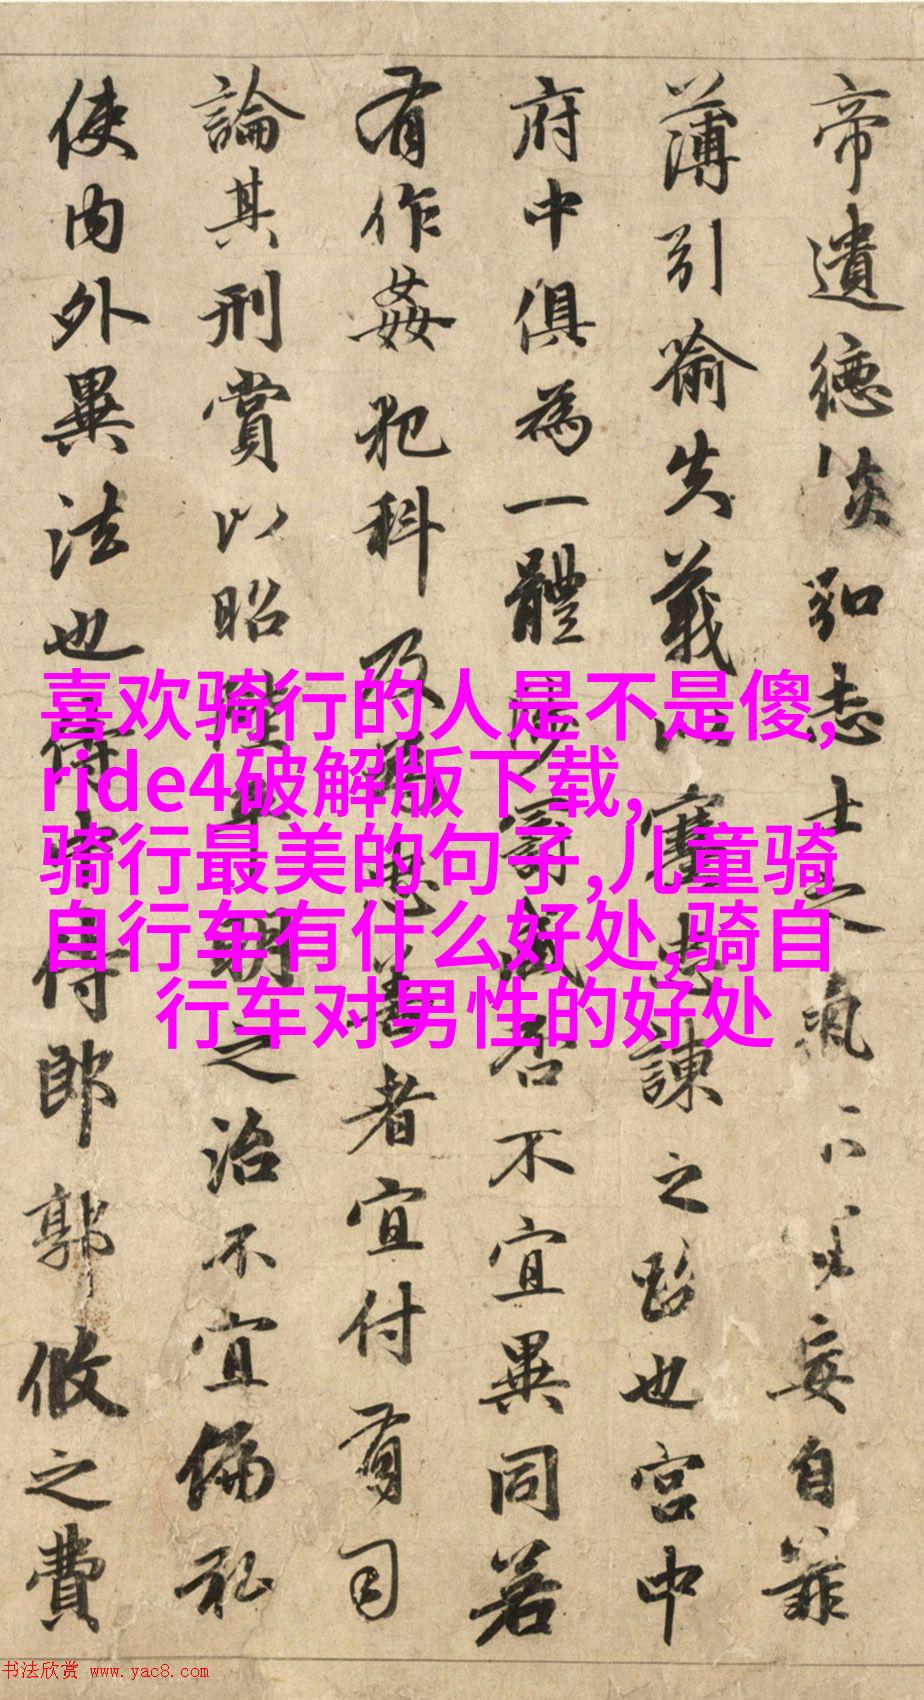 帝遺德恢弘志士之氣不宜妄自菲
薄引喻失義以塞忠諫之路也宮中
府中俱為一體陟罰臧否不宜異同若
有作姦犯科及為忠善者宜付有司
論其刑賞以昭陛下平明之治不宜偏私
使內外異法也侍中侍郎郭攸之費
喜欢骑行的人是不是傻,
ride4破解版下载,
骑行最美的句子,儿童骑
自行车有什么好处,骑自
行车对男性的好处
书法欣赏 www.yac8.com